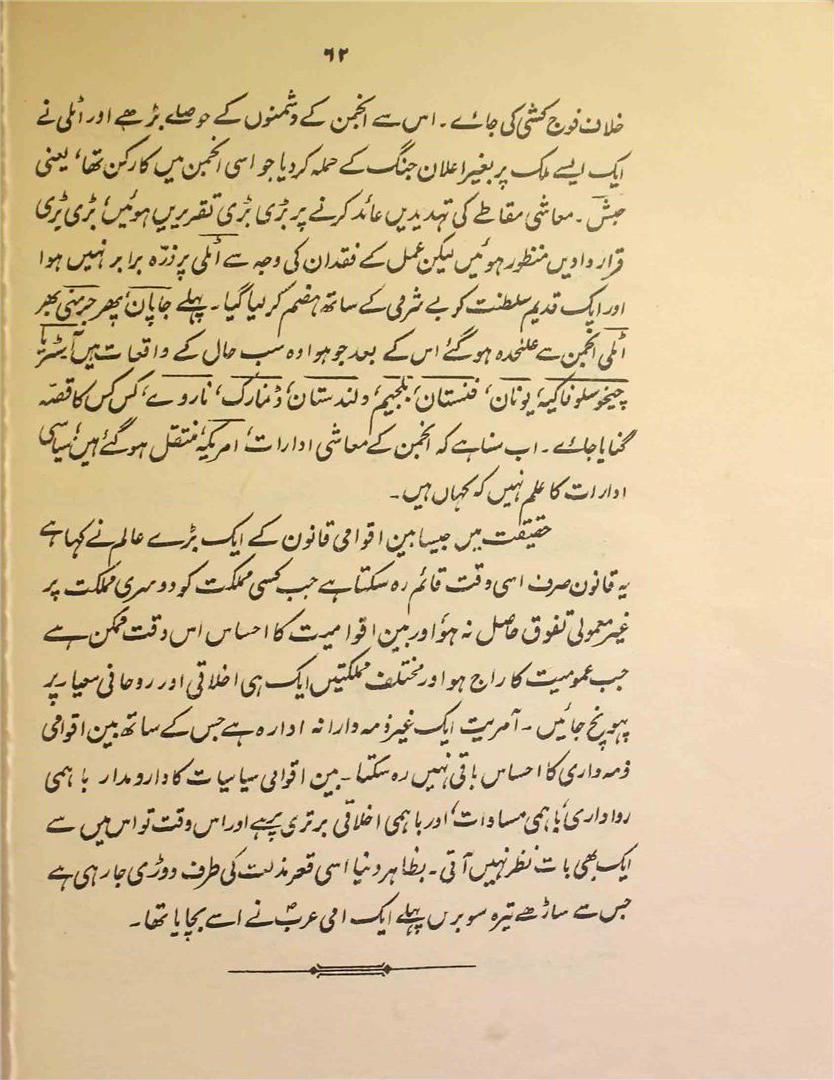 ۶۲
خلاف فوج کشی کی جائے۔ اس سے انجمن کے دشمنوں کے حوصلے بڑھے اور اٹلی نے
ایک ایسے ملک پر بغیر اعلان جنگ کے حملہ کردیا جو اسی انجمن میں کا رکن تھا، یعنی
حبش۔ معاشی مقاطعے کی تہدیدیں عائد کرنے پر بڑی بڑی تقریریں ہوئیں، بڑی بڑی
قرار دادیں منظور ہوئیں لیکن عمل کے فقدان کی وجہ سے اٹلی پر ذرّہ برابر نہیں ہوا
اور ایک قدیم سلطنت کو بے شرمی کے ساتھ ہضم کر لیا گیا۔ پہلے جاپان، پھر جرمنی پھر
اٹلی انجمن سے علٰحدہ ہوگئے اس کے بعد جو ہوا وہ سب حال کے واقعات ہیں آسٹریا
چیخوسلوفاکیہ، یونان، فنستان، بلجیم، ولندستان، ڈنمارک، ناروے، کس کس کا قصّہ
گنایا جائے۔ اب سنا ہے کہ انجمن کے معاشی ادارات، امریکہ، منتقل ہوگئے ہیں، سیاسی
ادارات کا علم نہیں کہ کہاں ہیں۔
حقیقت میں جیسا بین اقوامی قانون کے ایک بڑے عالم نے کہا ہے
یہ قانون صرف اسی وقت قائم رہ سکتا ہے جب کسی مملکت کو دوسری مملکت پر
غیر معمولی تفوق حاصل نہ ہو، اور بین اقوامیت کا احساس اس وقت ممکن ہے
جب عمومیت کا راج ہو اور مختلف مملکتیں ایک ہی اخلاقی اور روحانی معیار پر
پہونچ جائیں۔ آمریت ایک غیر ذمہ دارانہ ادارہ ہے جس کے ساتھ بین اقوامی
ذمہ داری کا احساس باقی نہیں رہ سکتا۔ بین اقوامی سیاسیات کا دارومدار باہمی
رواداری، باہمی مساوات، اور باہمی اخلاقی برتری پر ہے اور اس وقت تو اس میں سے
ایک بھی بات نظر نہیں آتی۔ بظاہر دنیا اسی قعر مذلت کی طرف دوڑی جا رہی ہے
جس سے ساڑھے تیرہ سو برس پہلے ایک امی عربؐ نے اسے بچایا تھا۔